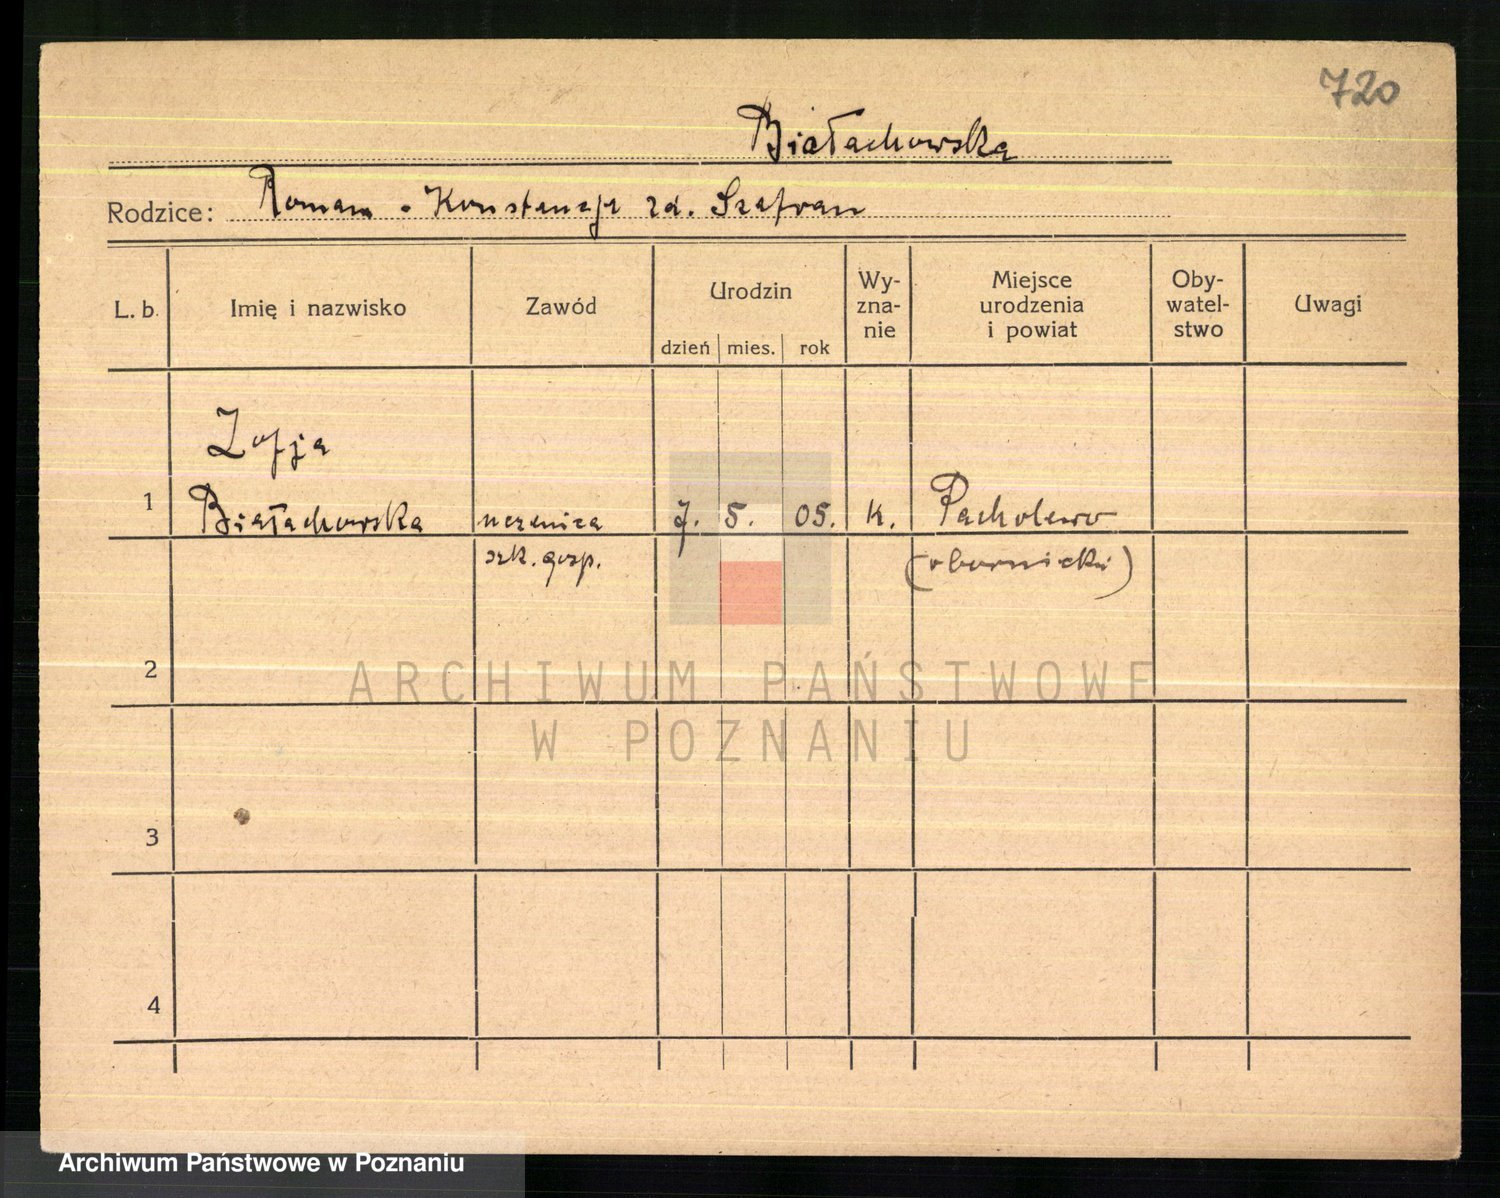 720
Białachowska
Rodzice: Roman - Konstancja zd. Szafran
L. b. Imię i nazwisko Zawód Urodzin dzień mies. rok Wy-zna-nie Miejsce urodzenia i powiat Oby-watel-stwo Uwagi
Zofja
1 Białachowska uczenica 7. 5. 05. k. Pacholewo
szk. gosp. (obornicki)
2
3
4
ARCHIWUM PAŃSTWOWE
W POZNANIU
Archiwum Państwowe w Poznaniu